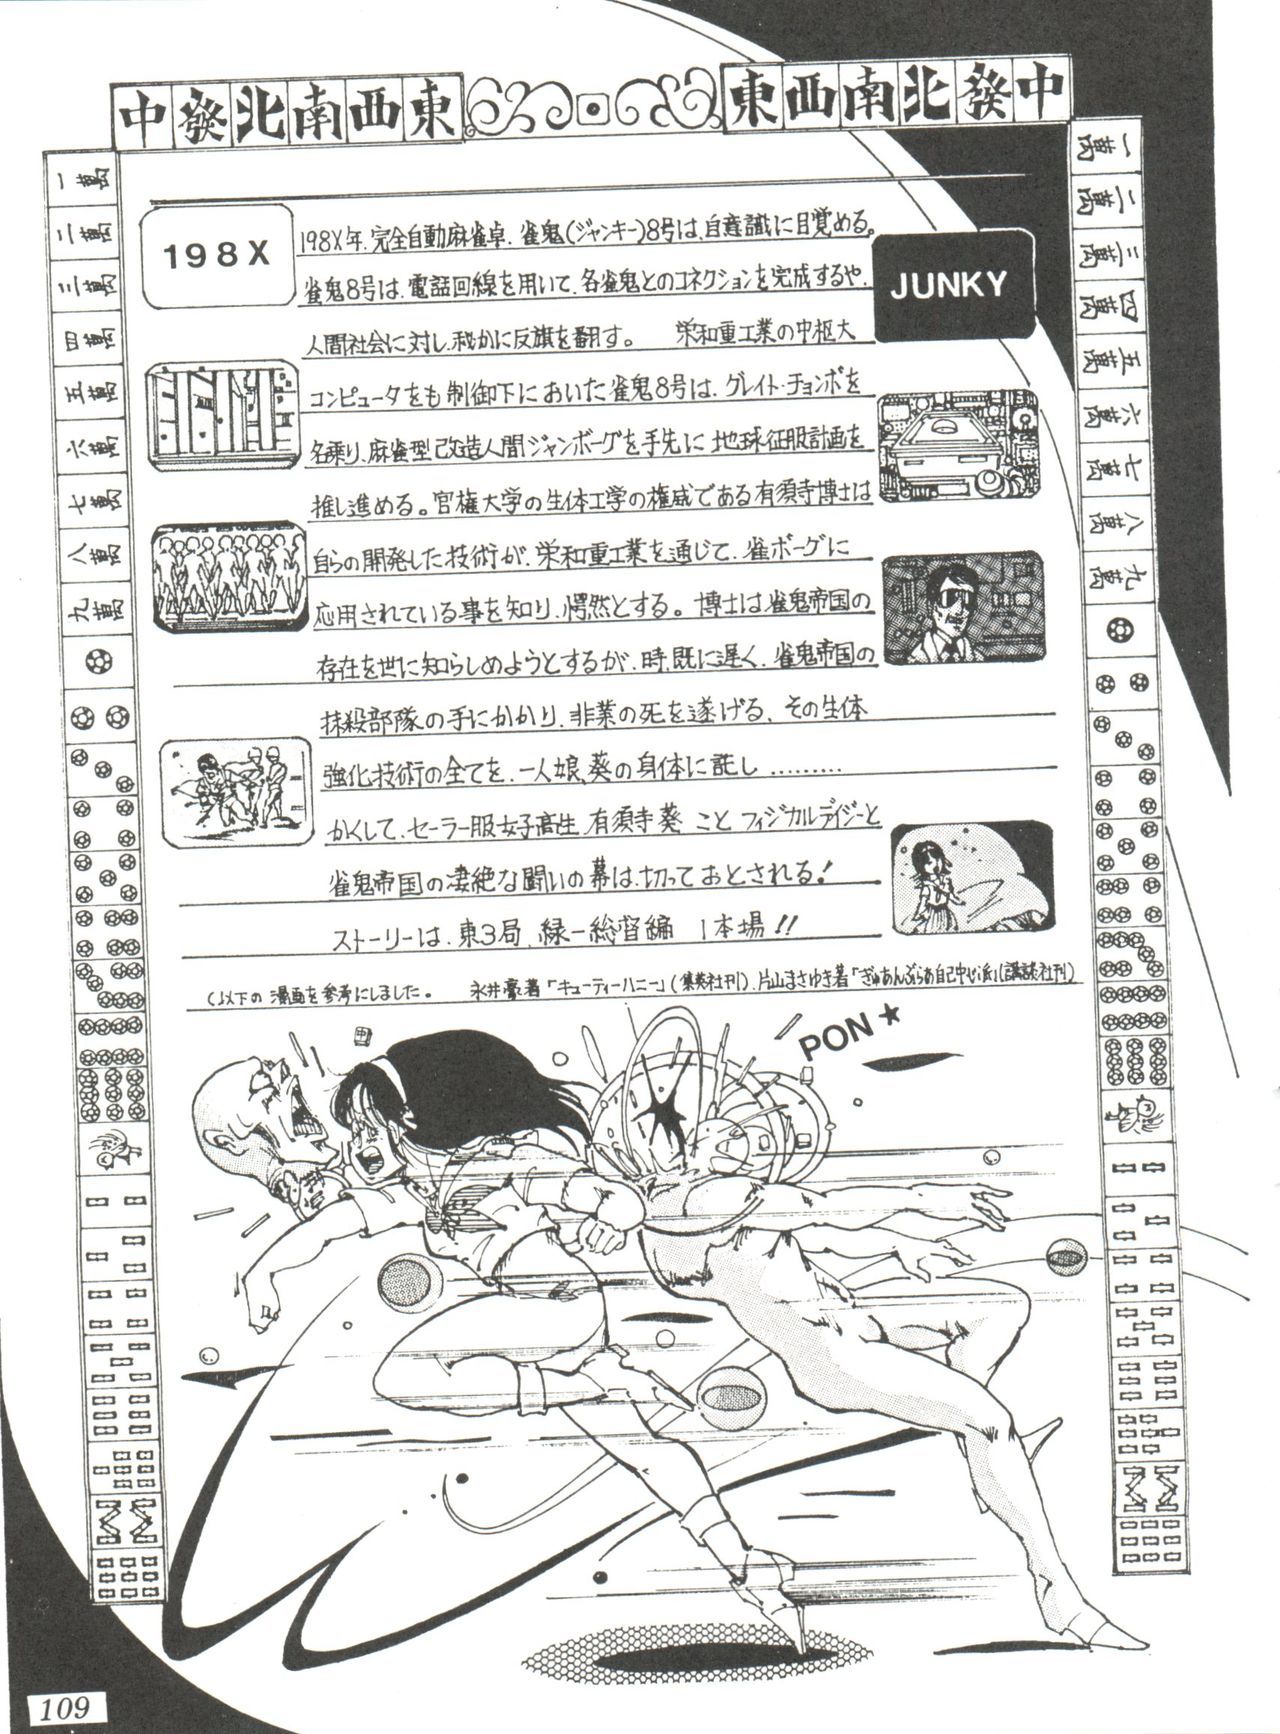 中發北南西東
東西南北發中
一萬
二萬
三萬
四萬
五萬
六萬
七萬
八萬
九萬
一萬
二萬
三萬
四萬
五萬
六萬
七萬
八萬
九萬
198X
JUNKY
198X年、完全自動麻雀卓、雀鬼(ジャンキー)8号は、自意識に目覚める。
雀鬼8号は、電話回線を用いて、各雀鬼とのコネクションを完成するや、
人間社会に対し、秘かに反旗を翻す。 栄和重工業の中枢大
コンピュータをも制御下においた雀鬼8号は、グレイト・チョンボを
名乗り、麻雀型改造人間ジャンボーグを手先に 地球征服計画を
推し進める。官権大学の生体工学の権威である有須寺博士は
自らの開発した技術が、栄和重工業を通じて、雀ボーグに
応用されている事を知り、愕然とする。博士は雀鬼帝国の
存在を世に知らしめようとするが、時、既に遅く、雀鬼帝国の
抹殺部隊の手にかかり、非業の死を遂げる、その生体
強化技術の全てを、一人娘、葵の身体に託し………
かくして、セーラー服女子高生、有須寺葵 こと フィジカルデイジーと
雀鬼帝国の凄絶な闘いの幕は、切っておとされる!
ストーリーは、東3局、緑一総督編 1本場!!
(以下の漫画を参考にしました。 永井豪著「キューティーハニー」(集英社刊)、片山まさゆき著「ぎゅあんぶらあ自己中心派」(講談社刊)
PON★
109